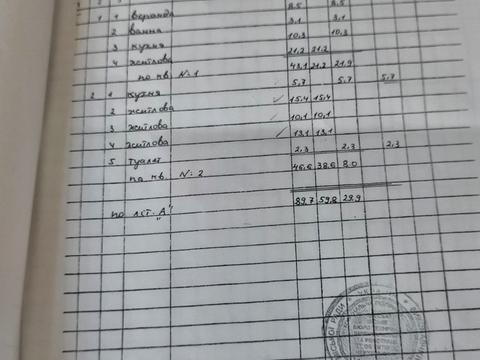 1 1 веранда 8,5 8,5
2 ванна 3,1 3,1
3 кухня 10,3 10,3
4 житлова 21,2 21,2
по кв. N: 1 43,1 21,2 21,9
2 1 кухня 5,7 5,7 5,7
2 житлова 15,4 15,4
3 житлова 10,1 10,1
4 житлова 13,1 13,1
5 туалет 2,3 2,3 2,3
по кв. N: 2 46,6 38,6 8,0
по літ. "А" 89,7 59,8 29,9